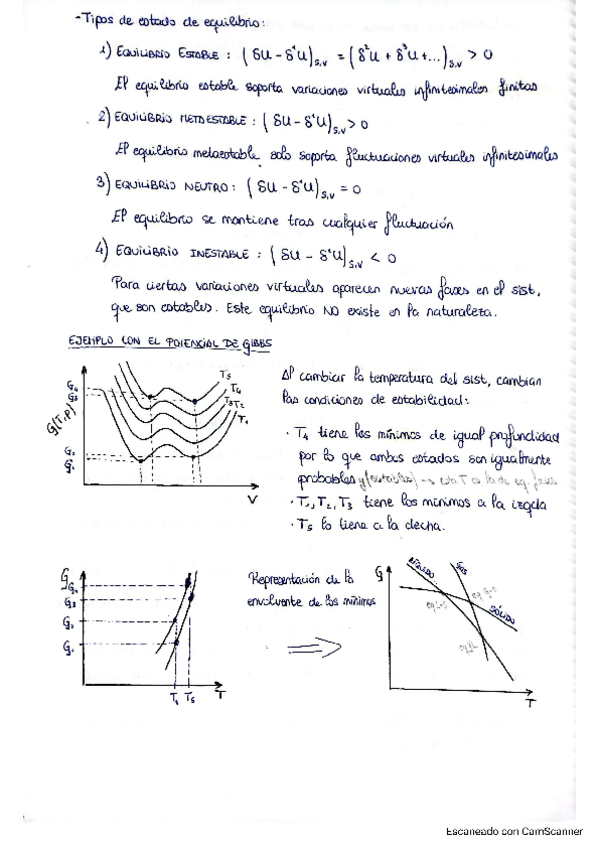 - Tipos de estado de equilibrio:
1) EQUILIBRIO ESTABLE : (δU - δ¹U)S,V = (δ²U + δ³U + ...)S,V > 0
El equilibrio estable soporta variaciones virtuales infinitesimales finitas
2) EQUILIBRIO METAESTABLE : (δU - δ¹U)S,V > 0
El equilibrio metaestable solo soporta fluctuaciones virtuales infinitesimales
3) EQUILIBRIO NEUTRO : (δU - δ¹U)S,V = 0
El equilibrio se mantiene tras cualquier fluctuación
4) EQUILIBRIO INESTABLE : (δU - δ¹U)S,V < 0
Para ciertas variaciones virtuales aparecen nuevas fases en el sist,
que son estables. Este equilibrio NO existe en la naturaleza.
EJEMPLO CON EL POTENCIAL DE GIBBS
G(T,P)
T5
T4
T3 T2
T1
V
Al cambiar la temperatura del sist, cambian
las condiciones de estabilidad:
· T4 tiene los mínimos de igual profundidad
por lo que ambos estados son igualmente
probables y (estables)
· T1, T2, T3 tiene los mínimos a la izqda
· T5 lo tiene a la dcha.
G
T
Representación de la
envolvente de los mínimos
G
LÍQUIDO
GAS
SÓLIDO
T
Escaneado con CamScanner